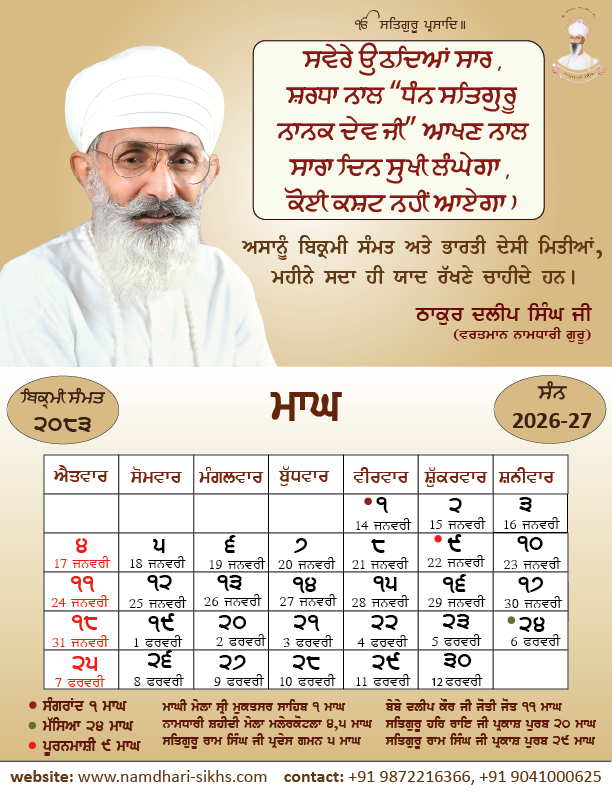 ੴ ਸਤਿਗੁਰੂ ਪ੍ਰਸਾਦਿ॥
ਸਵੇਰੇ ਉਠਦਿਆਂ ਸਾਰ,
ਸ਼ਰਧਾ ਨਾਲ “ਧੰਨ ਸਤਿਗੁਰੂ
ਨਾਨਕ ਦੇਵ ਜੀ” ਆਖਣ ਨਾਲ
ਸਾਰਾ ਦਿਨ ਸੁਖੀ ਲੰਘੇਗਾ,
ਕੋਈ ਕਸ਼ਟ ਨਹੀਂ ਆਏਗਾ।
ਅਸਾਨੂੰ ਬਿਕ੍ਰਮੀ ਸੰਮਤ ਅਤੇ ਭਾਰਤੀ ਦੇਸੀ ਮਿਤੀਆਂ,
ਮਹੀਨੇ ਸਦਾ ਹੀ ਯਾਦ ਰੱਖਣੇ ਚਾਹੀਦੇ ਹਨ।
ਠਾਕੁਰ ਦਲੀਪ ਸਿੰਘ ਜੀ
(ਵਰਤਮਾਨ ਨਾਮਧਾਰੀ ਗੁਰੂ)
ਬਿਕ੍ਰਮੀ ਸੰਮਤ
੨੦੮੩
ਮਾਘ
ਸੰਨ
2026-27
ਐਤਵਾਰ ਸੋਮਵਾਰ ਮੰਗਲਵਾਰ ਬੁੱਧਵਾਰ ਵੀਰਵਾਰ ਸ਼ੁੱਕਰਵਾਰ ਸ਼ਨੀਵਾਰ
੧ ੨ ੩
14 ਜਨਵਰੀ 15 ਜਨਵਰੀ 16 ਜਨਵਰੀ
੪ ੫ ੬ ੭ ੮ ੯ ੧੦
17 ਜਨਵਰੀ 18 ਜਨਵਰੀ 19 ਜਨਵਰੀ 20 ਜਨਵਰੀ 21 ਜਨਵਰੀ 22 ਜਨਵਰੀ 23 ਜਨਵਰੀ
੧੧ ੧੨ ੧੩ ੧੪ ੧੫ ੧੬ ੧੭
24 ਜਨਵਰੀ 25 ਜਨਵਰੀ 26 ਜਨਵਰੀ 27 ਜਨਵਰੀ 28 ਜਨਵਰੀ 29 ਜਨਵਰੀ 30 ਜਨਵਰੀ
੧੮ ੧੯ ੨੦ ੨੧ ੨੨ ੨੩ ੨੪
31 ਜਨਵਰੀ 1 ਫਰਵਰੀ 2 ਫਰਵਰੀ 3 ਫਰਵਰੀ 4 ਫਰਵਰੀ 5 ਫਰਵਰੀ 6 ਫਰਵਰੀ
੨੫ ੨੬ ੨੭ ੨੮ ੨੯ ੩੦
7 ਫਰਵਰੀ 8 ਫਰਵਰੀ 9 ਫਰਵਰੀ 10 ਫਰਵਰੀ 11 ਫਰਵਰੀ 12 ਫਰਵਰੀ
ਸੰਗਰਾਂਦ ੧ ਮਾਘ
ਮੱਸਿਆ ੨੪ ਮਾਘ
ਪੂਰਨਮਾਸ਼ੀ ੯ ਮਾਘ
ਮਾਘੀ ਮੇਲਾ ਸ੍ਰੀ ਮੁਕਤਸਰ ਸਾਹਿਬ ੧ ਮਾਘ
ਨਾਮਧਾਰੀ ਸ਼ਹੀਦੀ ਮੇਲਾ ਮਲੇਰਕੋਟਲਾ ੪,੫ ਮਾਘ
ਸਤਿਗੁਰੂ ਰਾਮ ਸਿੰਘ ਜੀ ਪ੍ਰਦੇਸ ਗਮਨ ੫ ਮਾਘ
ਬੇਬੇ ਦਲੀਪ ਕੌਰ ਜੀ ਜੋਤੀ ਜੋਤ ੧੧ ਮਾਘ
ਸਤਿਗੁਰੂ ਹਰਿ ਰਾਇ ਜੀ ਪ੍ਰਕਾਸ਼ ਪੁਰਬ ੨੦ ਮਾਘ
ਸਤਿਗੁਰੂ ਰਾਮ ਸਿੰਘ ਜੀ ਪ੍ਰਕਾਸ਼ ਪੁਰਬ ੨੯ ਮਾਘ
website: www.namdhari-sikhs.com contact: +91 9872216366, +91 9041000625